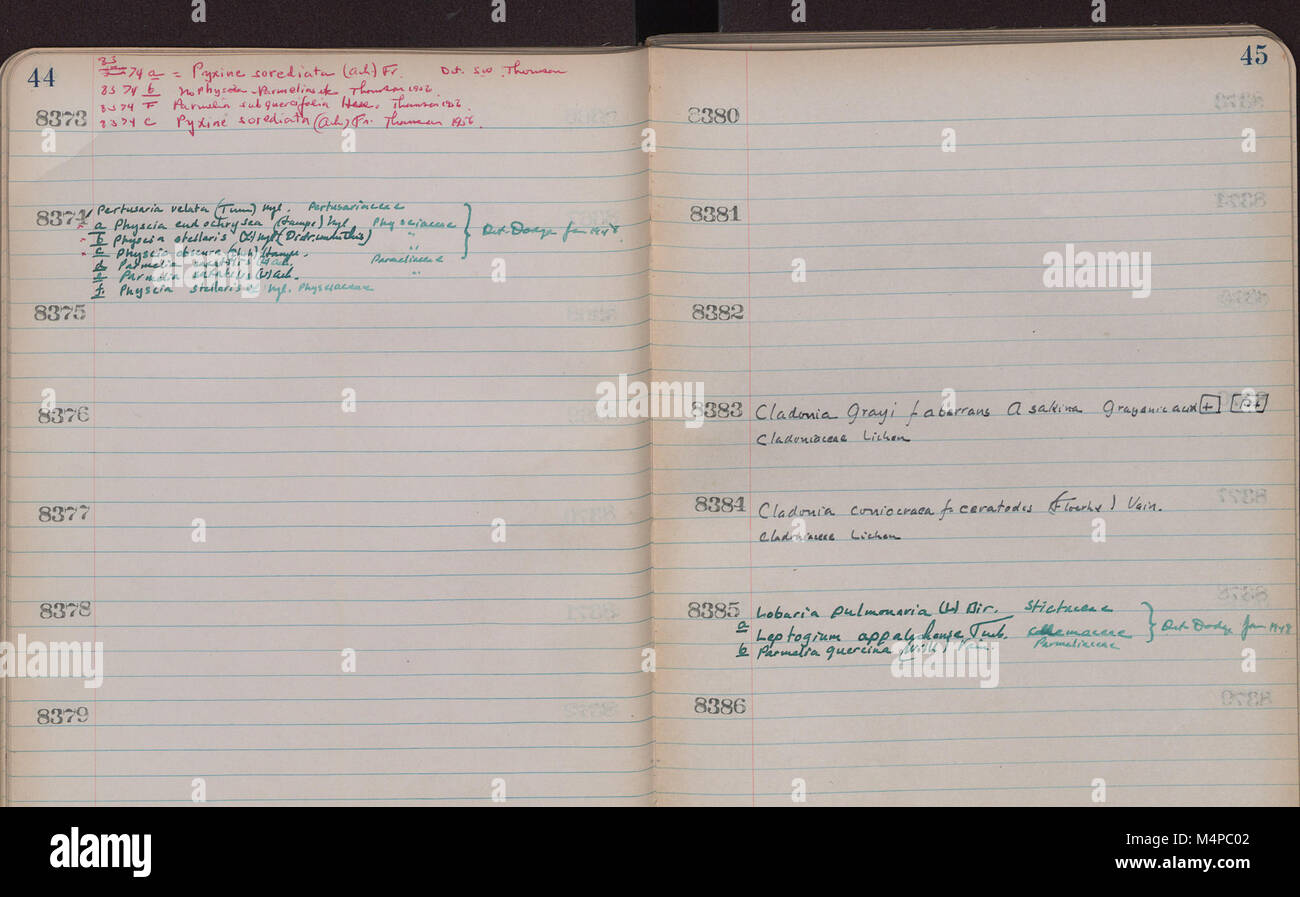 44
8374 a = Pyxine sorediata (Ach) Fr. Det. J.W. Thomson
8374 b no Physcia - Parmelias ok Thomson 1956
8374 F Parmelia subquercifolia Hue. Thomson 1956
8373
8374 c Pyxine sorediata (Ach) Fr. Thomson 1956.
8374 Pertusaria velata (Turn) Nyl. Pertusariaceae
a Physcia endochrysea (Hampe) Nyl Physciaceae
b Physcia stellaris (L) Nyl " Det. Dodge Jan 1948.
c Physcia obscura Hampe.
d Parmelia Ach. Parmeliaceae
e Parmelia (L) Ach. "
f. Physcia stellaris Nyl. Physciaceae
8375
8376
8377
8378
8379
45
8380
8381
8382
8383 Cladonia Grayi f aberrans Asahina +
Cladoniaceae Lichen
8384 Cladonia coniocraea f. ceratodes (Floerke) Vain.
Cladoniaceae Lichen
8385 Lobaria pulmonaria (L) Stictaceae
a Leptogium Tuck. Collemaceae Det. Dodge Jan 1948
b Parmelia quercina (Willd) Vain. Parmeliaceae
8386
alamy
Image ID: M4PC02
www.alamy.com